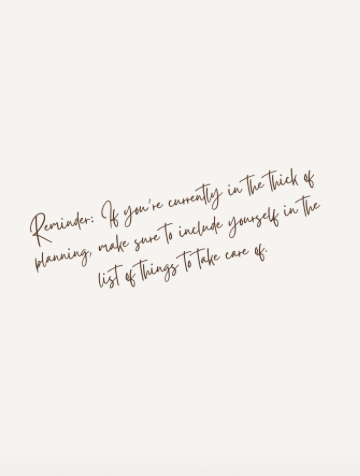 Reminder: If you're currently in the thick of
planning, make sure to include yourself in the
list of things to take care of.